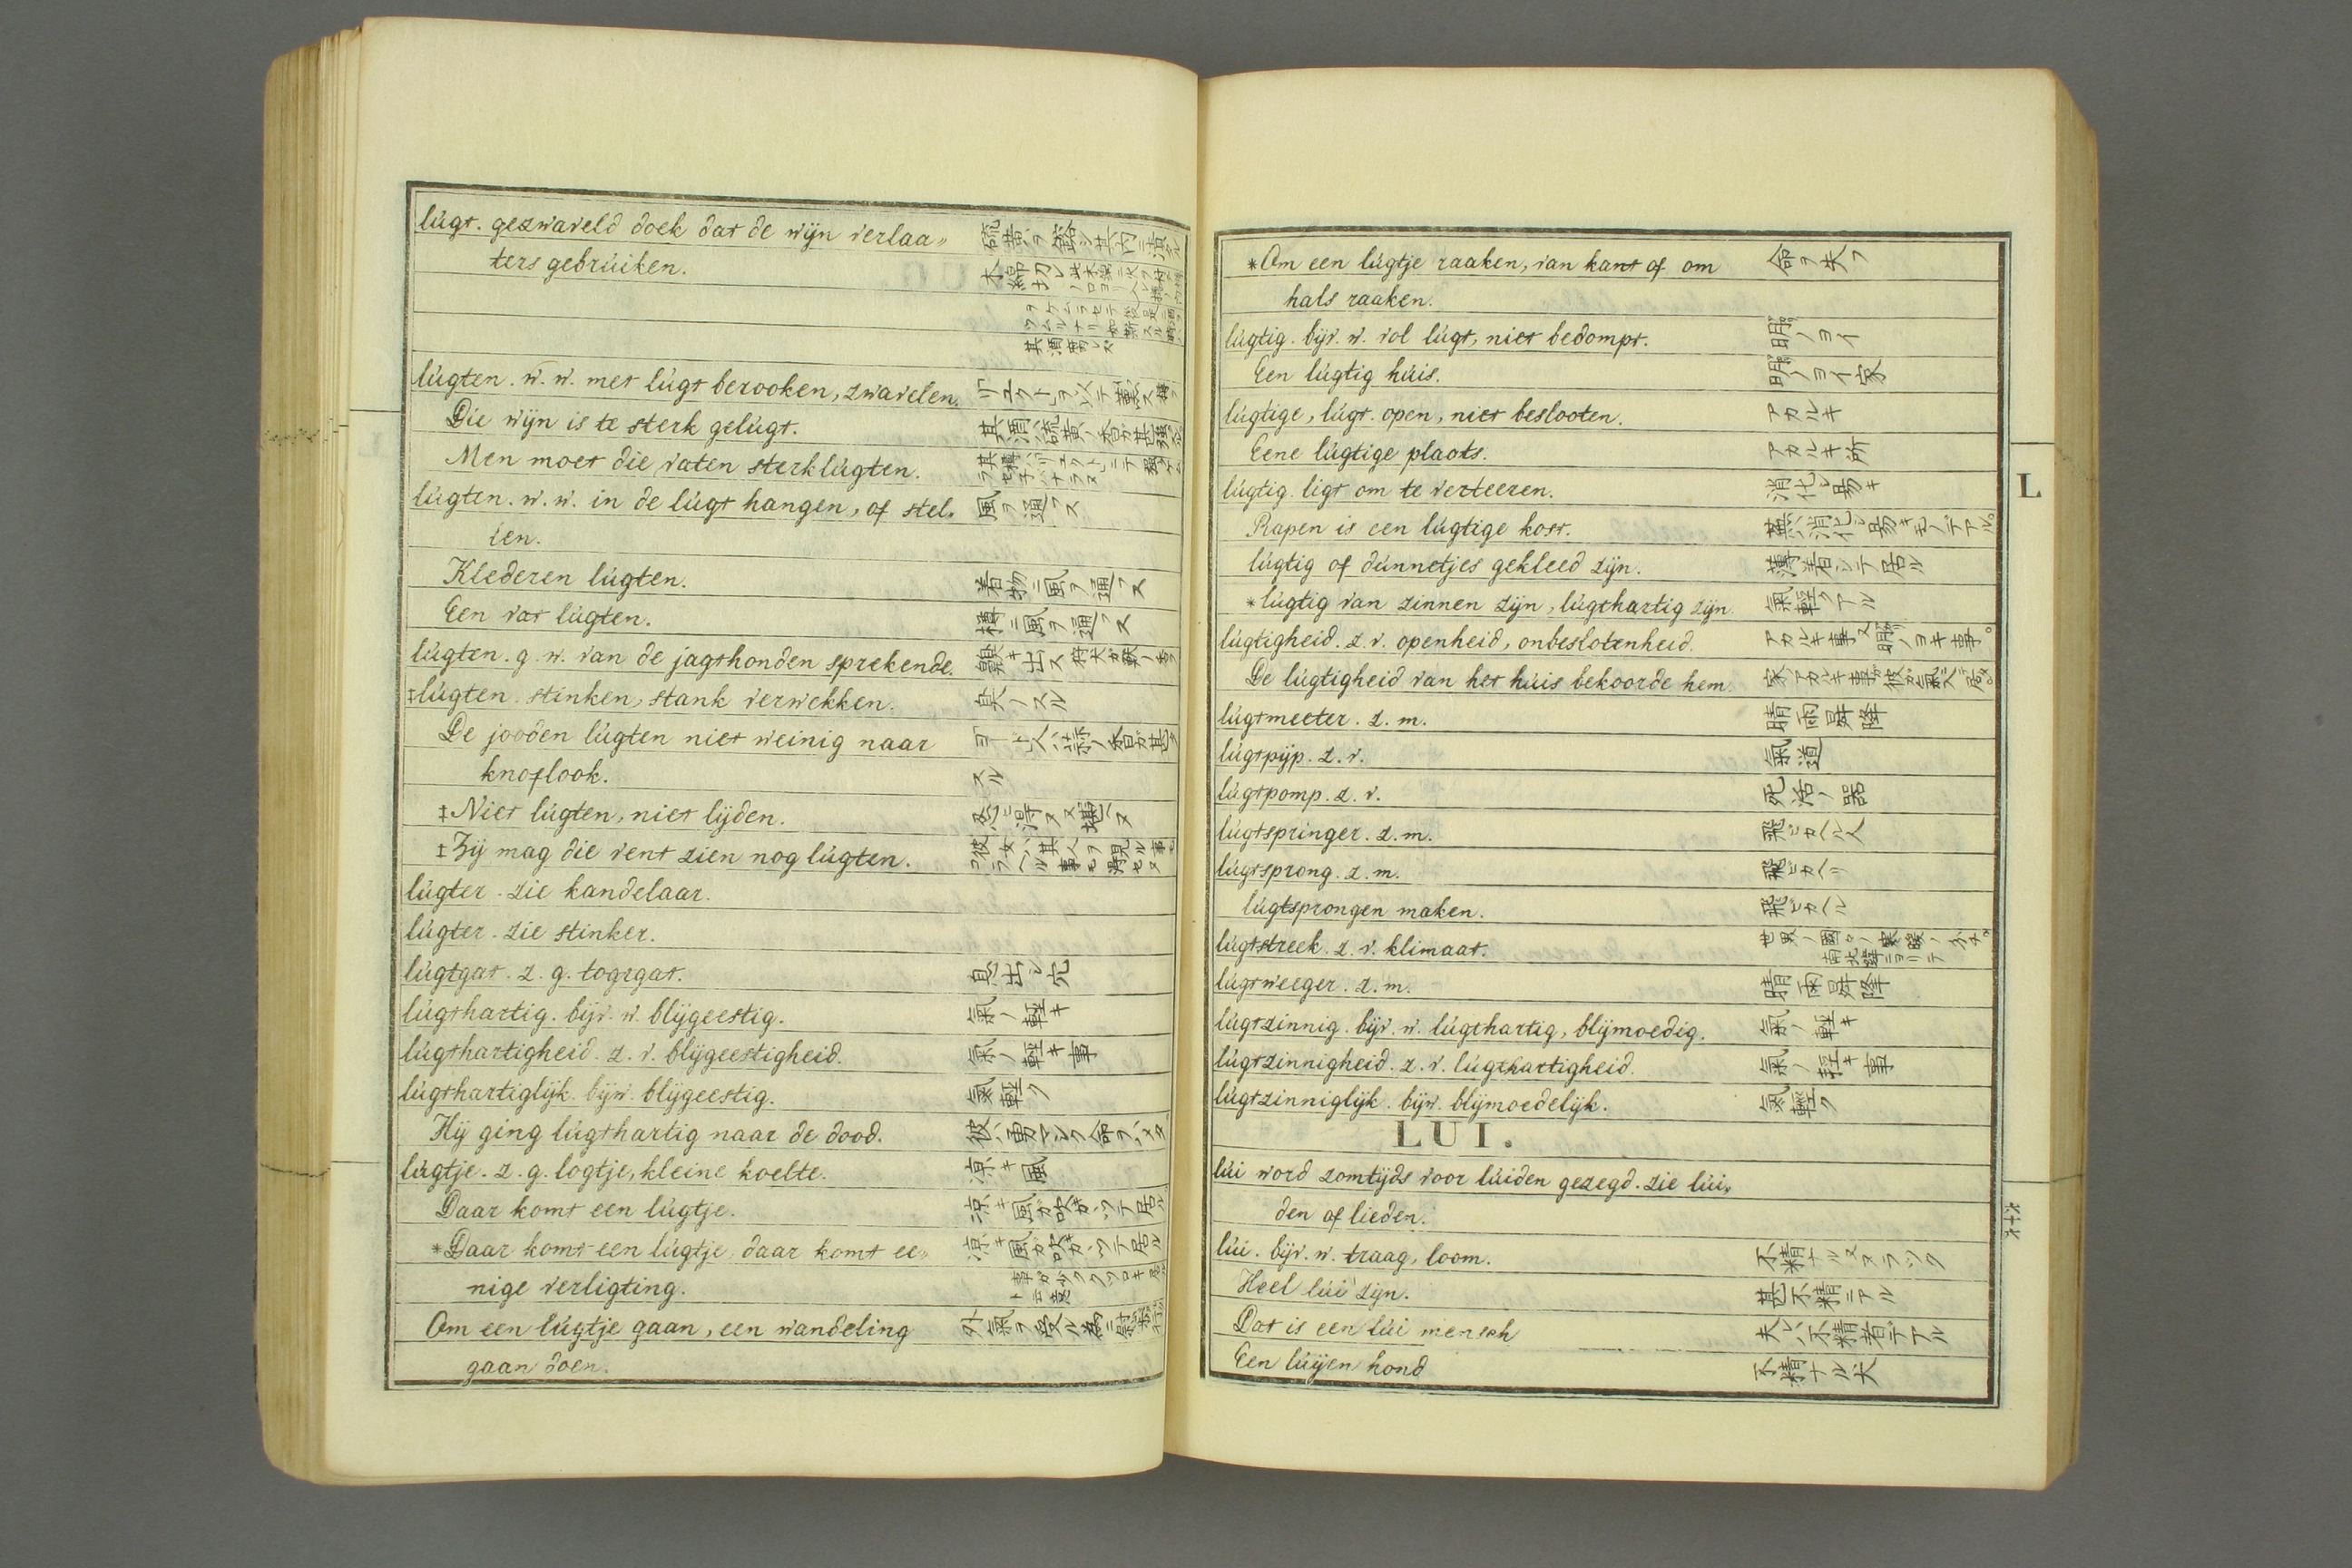 lúgt. gezwaveld doek dat de wijn verlaa„
ters gebrúiken.
lúgten. w. w. met lúgt berooken, zwavelen.
Die wijn is te sterk gelúgt. 其酒ハ硫黄ノ香ガ甚強
Men moet die vaten sterk lúgten.
lúgten. w. w. in de lúgt hangen, of stel„ 風ヲ通ス
len.
Klederen lúgten. 着物ニ風ヲ通ス
Een vat lúgten. 樽ニ風ヲ通ス
lúgten. g. w. van de jagthonden sprekende.
‡lúgten. stinken, stank verwekken. 臭ノスル
De jooden lúgten niet weinig naar
knoflook. スル
‡Niet lúgten, niet lijden.
‡Zij mag die vent zien nog lúgten.
lúgter. zie kandelaar.
lúgter. zie stinker.
lúgtgat. z. g. togtgat. 息出シ穴
lúgthartig. bijv. w. blijgeestig. 氣ノ輕キ
lúgthartigheid. z. v. blijgeestigheid. 氣ノ輕キ事
lúgthartiglijk. bijw. blijgeestig. 氣輕ク
Hij ging lúgthartig naar de dood.
lúgtje. z. g. logtje, kleine koelte. 凉キ風
Daar komt een lúgtje. 凉キ風ガ吹カツテ居ル
*Daar komt een lúgtje, daar komt ee„ 凉キ風ガ吹カツテ居ル
nige verligting.
Om een lúgtje gaan, een wandeling
gaan doen.
*Om een lúgtje raaken, van kant of om 命ヲ失フ
hals raaken.
lúgtig. bijv. w. vol lúgt, niet bedompt.
Een lúgtig húis.
lúgtige, lúgt. open, niet beslooten. アカルキ
Eene lúgtige plaats. アカルキ所
lúgtig. ligt om te verteeren. 消化シ易キ
Rapen is een lúgtige kost.
lúgtig of dúnnetjes gekleed zijn. 薄着シテ居ル
*lúgtig van zinnen zijn, lúgthartig zijn. 氣輕クアル
lúgtigheid. z. v. openheid, onbeslotenheid.
De lúgtigheid van het húis bekoorde hem.
lúgtmeeter. z. m. 晴雨昇降
lúgtpijp. z. v. 氣道
lúgtpomp. z. v. 死活ノ器
lúgtspringer. z. m. 飛ビカヘル人
lúgtsprong. z. m. 飛ビカヘリ
lúgtsprongen maken. 飛ビカヘル
lúgtstreek. z. v. klimaat.
lúgtweeger. z. m. 晴雨昇降
lúgtzinnig. bijv. w. lúgthartig, blijmoedig. 氣ノ輕キ
lúgtzinnigheid. z. v. lúgthartigheid. 氣ノ輕キ事
lúgtzinniglijk. bijw. blijmoedelijk. 氣輕ク
LUI.
lúi word zomtijds voor lúiden gezegd. zie lúi„
den of lieden.
lúi. bijv. w. traag, loom.
Heel lúi zijn. 甚不精ニアル
Dat is een lúi mensch 夫レハ不精者デアル
Een lúijen hond 不精ナル犬
L